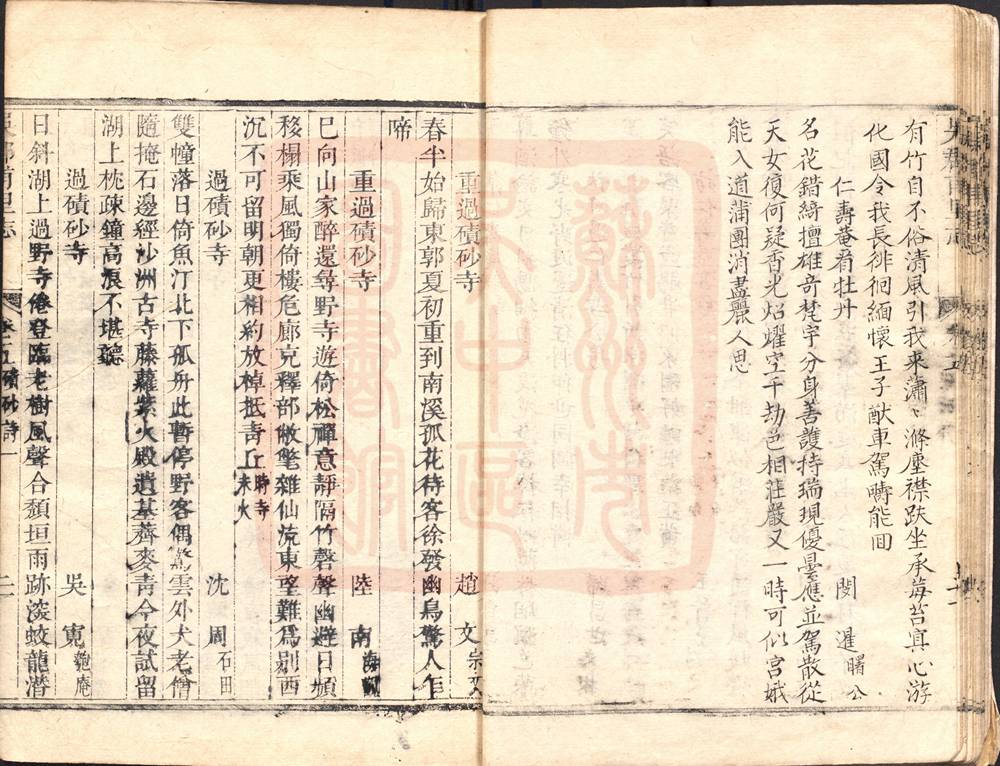 有竹自不俗清風引我来瀟〻滌塵襟趺坐承莓苔真心游
化國令我長徘徊緬懷王子猷車駕疇能囬
仁壽菴看牡丹
閔 暹 曙公
名花錯綺擅雄奇梵宇分身善護持瑞現優曇應並駕散從
天女復何疑香光炤耀空千劫色相荘嚴又一時可似宮娥
能入道蒲團消盡麗人思
重過磧砂寺
趙 文 宗文
春半始歸東郭夏初重到南溪孤花待客徐發幽鳥驚人乍
啼
重過磧砂寺
陸 南
巳向山家醉還尋野寺遊倚松禪意靜隔竹磬聲幽避日頻
移榻乘風獨倚樓危廊克釋部敝氅雜仙流東望難爲别西
沉不可留明朝更相約放棹抵靑丘 時寺未火
過磧砂寺
沈 周 石田
雙幢落日倚魚汀北下孤舟此暫停野客偶驚雲外犬老僧
隨掩石邊經沙洲古寺藤蘿紫火殿遺基薺麥靑今夜試留
湖上枕疎鐘高浪不堪聽
過磧砂寺
吳 寛 匏庵
日斜湖上過野寺倦登臨老樹風聲合頹垣雨跡淡蛟龍潜
吳郡甫里志
卷二五 磧砂詩一
二
蘇州市吳中區圖書館